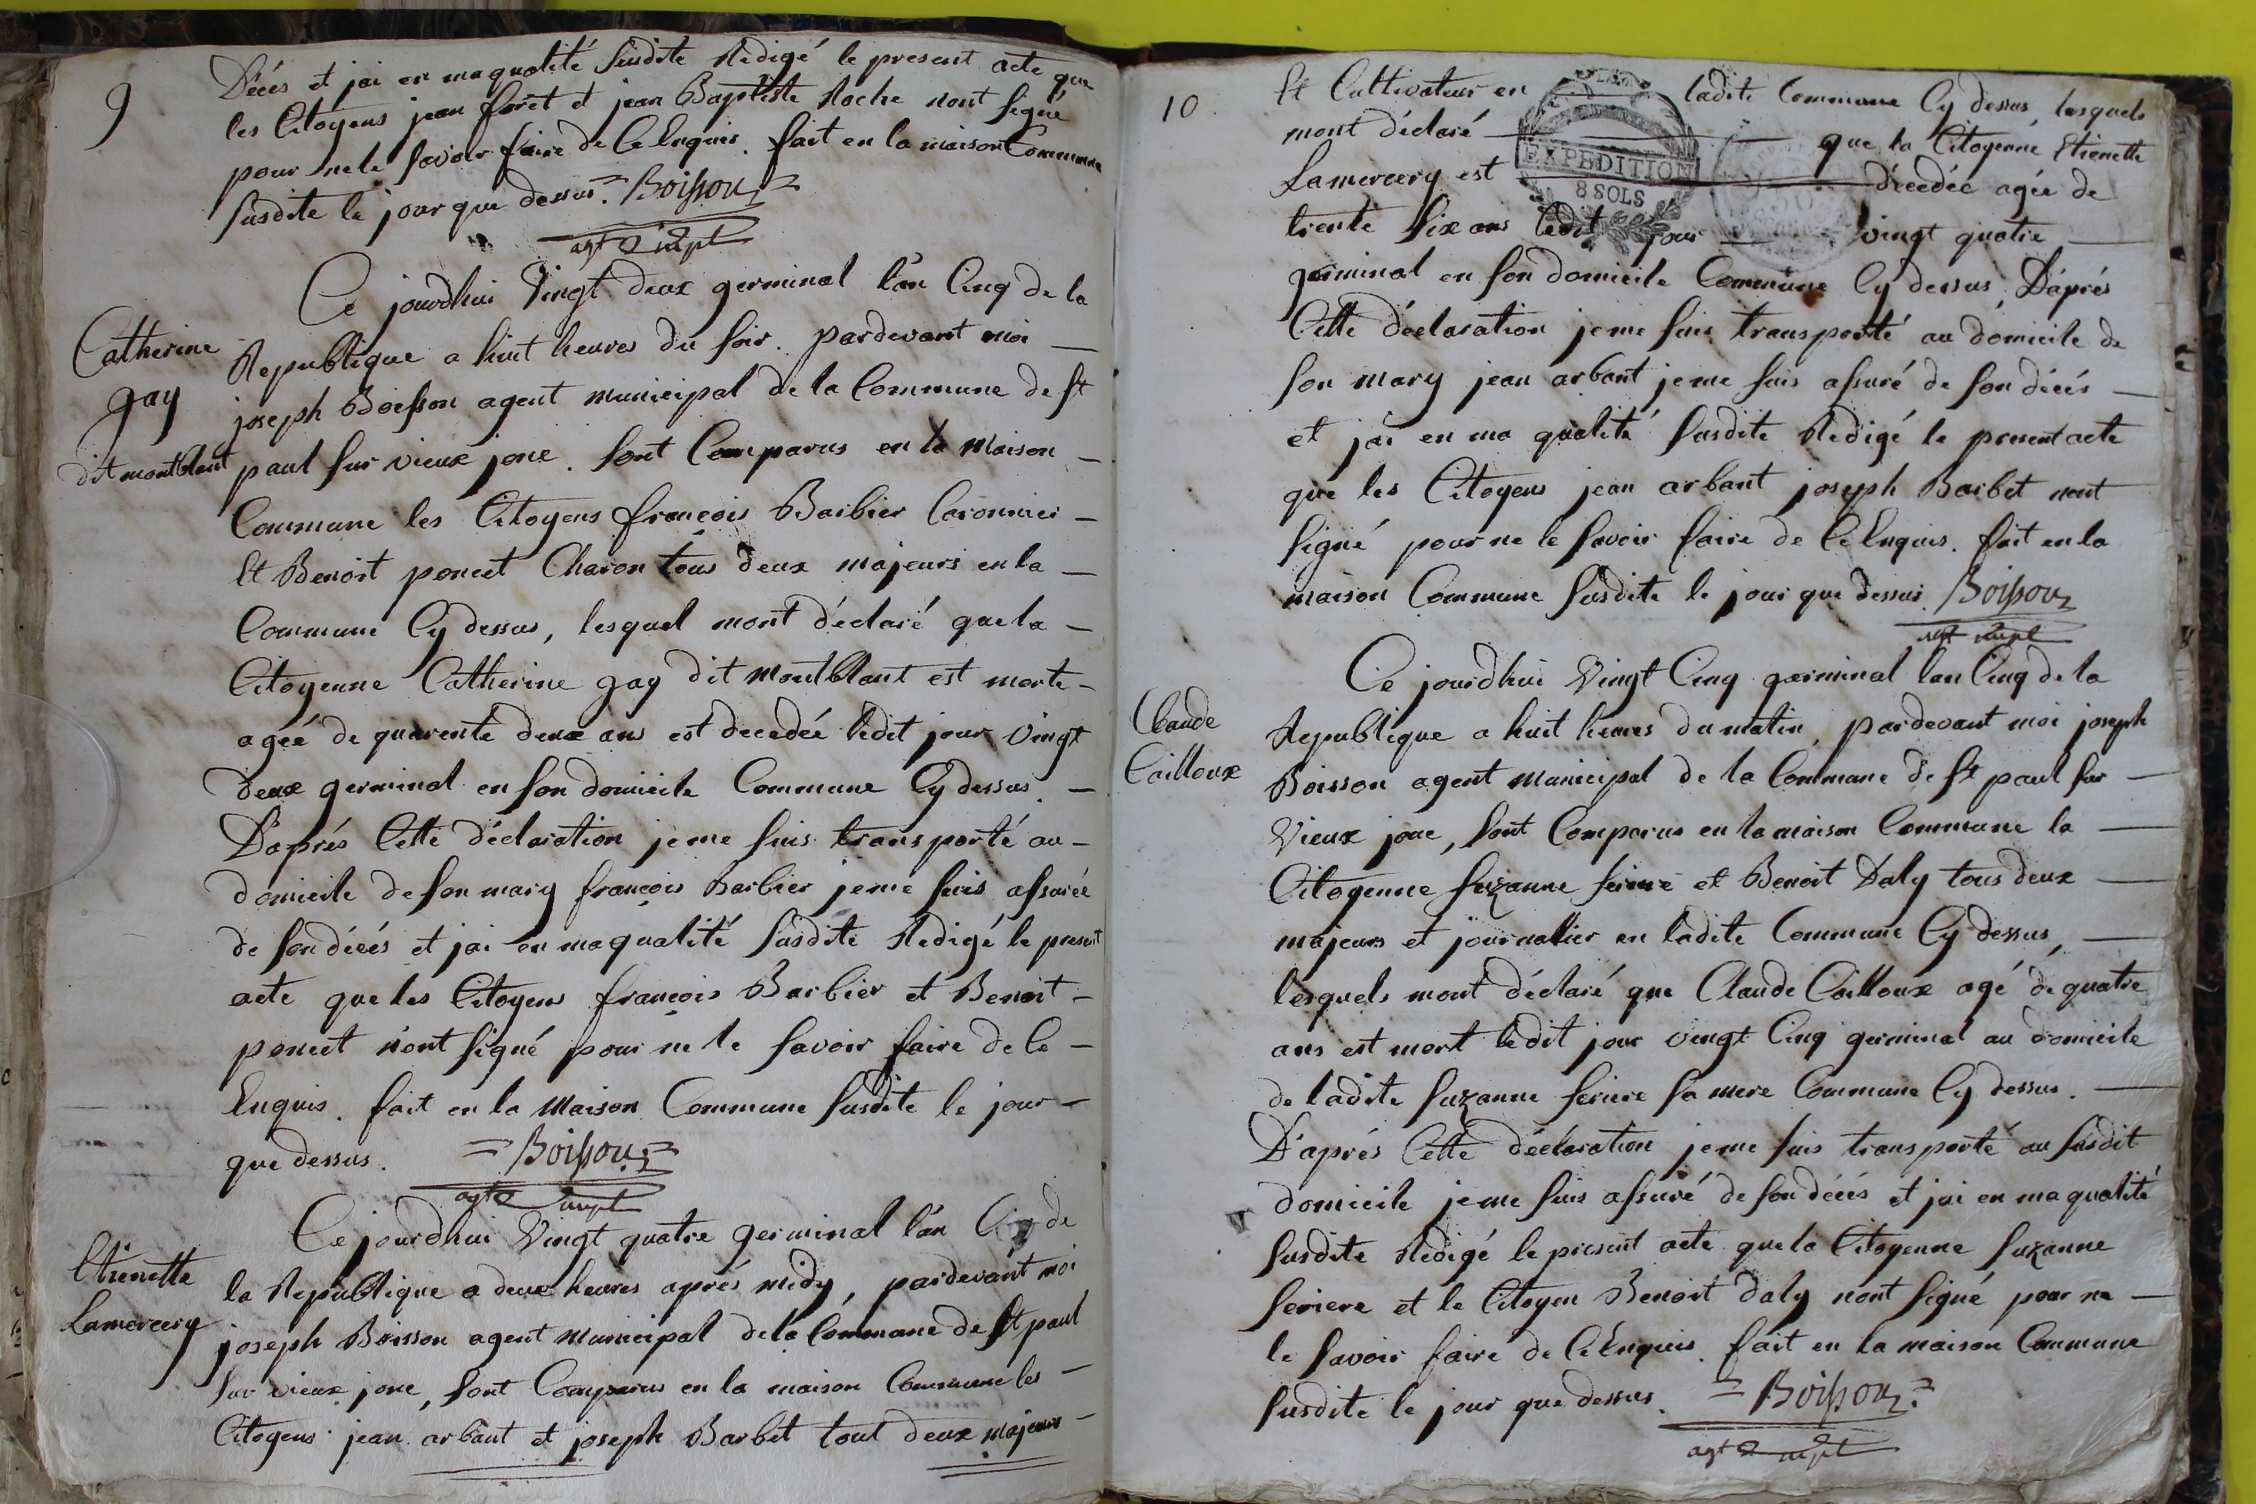 9
Décés et jai en ma qualité susdite Redigé le present acte que
les Citoyens jean foret et jean Baptiste Roche nont signé
pour ne le savoir faire de Ce Enquis. fait en la maison Commune
susdite le jour que dessus. Boisson
agt mpl
Ce jourdhui Vingt deux germinal l'an Cinq de la
Catherine
gay
dit montblant
Republique a huit heures du soir. pardevant moi
joseph Boisson agent municipal de la Commune de st
paul sur vieux jonc. sont Comparus en la Maison
Commune les Citoyens françois Barbier Caronnier
Et Benoit poncet Charon tous deux majeurs en la
Commune Cy dessus, lesquel mont déclaré que la
Citoyenne Catherine gay dit Montblant est morte
agée de quarente deux ans est decedée ledit jour Vingt
deux germinal en son domicile Commune Cy dessus.
D'aprés Cette déclaration je me suis transporté au
domicile de son mary françois Barbier je me suis assurée
de son décés et jai en ma qualité susdite Redigé le present
acte que les Citoyens françois Barbier et Benoit
poncet n'ont signé pour ne le savoir faire de Ce
Enquis. fait en la Maison Commune susdite le jour
que dessus. Boisson
agt mpl
Ce jourdhui Vingt quatre germinal l'an Cinq de
Etienette
Lamercery
la Republique a deux heures aprés midy, pardevant moi
joseph Boisson agent Municipal de la Commune de St paul
sur vieux jonc, sont Comparus en la maison Commune les
Citoyens jean arbant et joseph Barbet tout deux majeurs
10
Et Cultivateur en ladite Commune Cy dessus, lesquels
mont déclaré que la Citoyenne Etienette
Lamercery est décedée agée de
trente six ans ledit jour vingt quatre
germinal en son domicile Commune Cy dessus, D'aprés
Cette déclaration je me suis transporté au domicile de
son mary jean arbant je me suis assuré de son décés
et jai en ma qualité susdite Redigé le present acte
que les Citoyens jean arbant joseph Barbet nont
signé pour ne le savoir faire de Ce Enquis. fait en la
maison Commune susdite le jour que dessus Boisson
agt mpl
EXPEDITION
8 SOLS
Ce jourdhui Vingt Cinq germinal lan Cinq de la
Claude
Cailloux
Republique a huit heures du matin, pardevant moi joseph
Boisson agent Municipal de la Commune de St paul sur
Vieux jonc, sont Comparus en la maison Commune la
Citoyenne suzanne feriere et Benoit Daly tous deux
majeurs et journalier en ladite Commune Cy dessus,
lesquels mont déclaré que Claude Cailloux agé de quatre
ans est mort ledit jour vingt Cinq germinal au domicile
de ladite suzanne feriere sa mere Commune Cy dessus.
D'aprés Cette déclaration je me suis transporté au susdit
domicile je me suis assuré de son décés et jai en ma qualité
susdite Redigé le present acte que la Citoyenne suzanne
feriere et le Citoyen Benoit Daly nont signé pour ne
le savoir faire de Ce Enquis. fait en la maison Commune
susdite le jour que dessus. Boisson
agt mpl